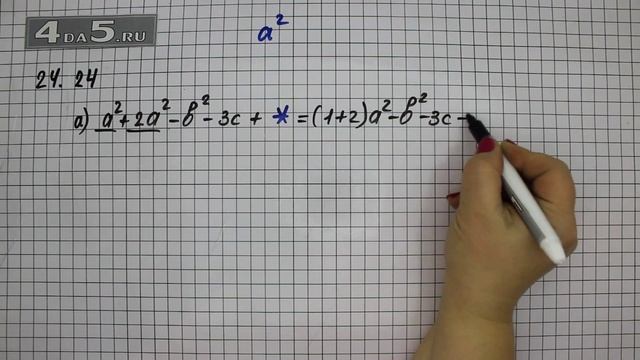 4DA5.RU
a²
24.24
а) a² + 2a² - b² - 3c + * = (1+2)a² - b² - 3c -